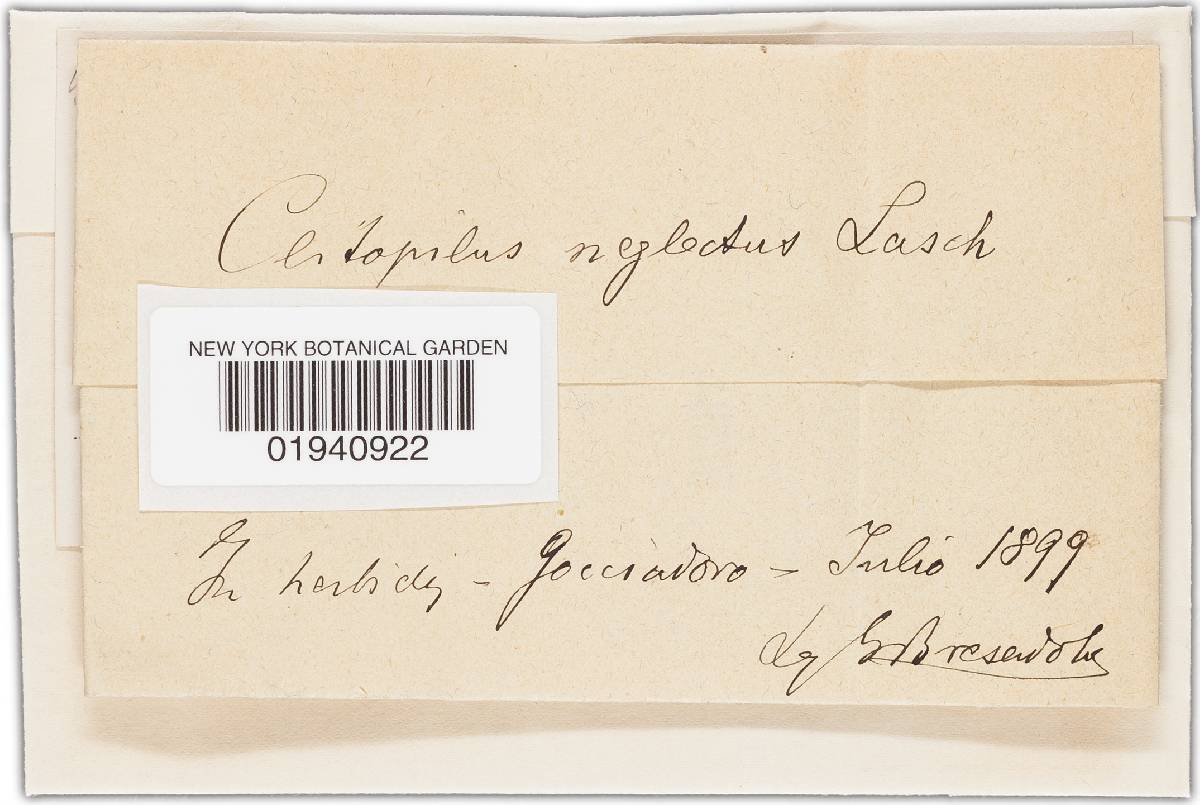 Clitopilus neglectus Lasch
NEW YORK BOTANICAL GARDEN
01940922
In herbidij - Gocciadoro - Julio 1899
Lg GBresadola